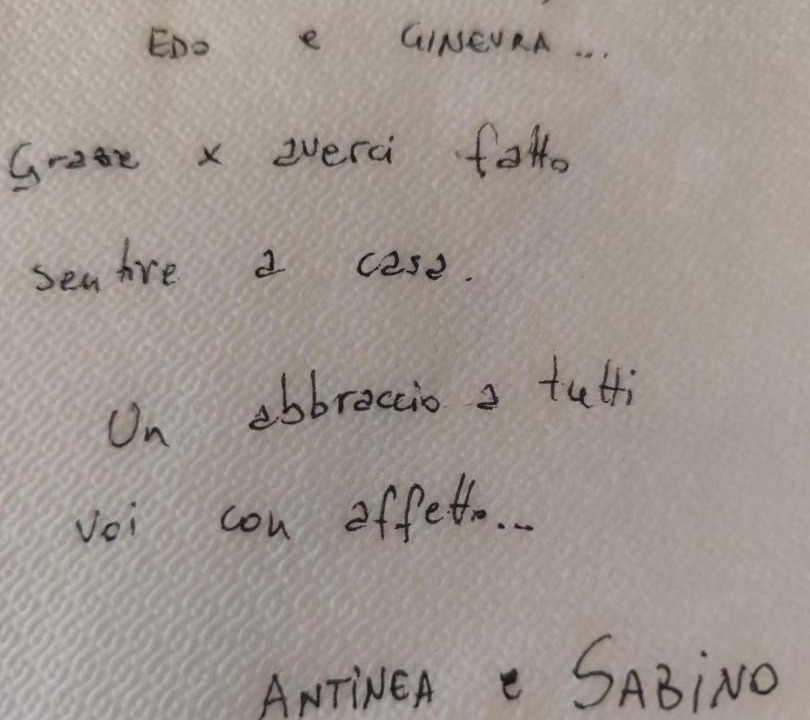 EDO e GINEVRA...
Grazie x averci fatto
sentire a casa.
Un abbraccio a tutti
voi con affetto...
ANTINEA e SABINO